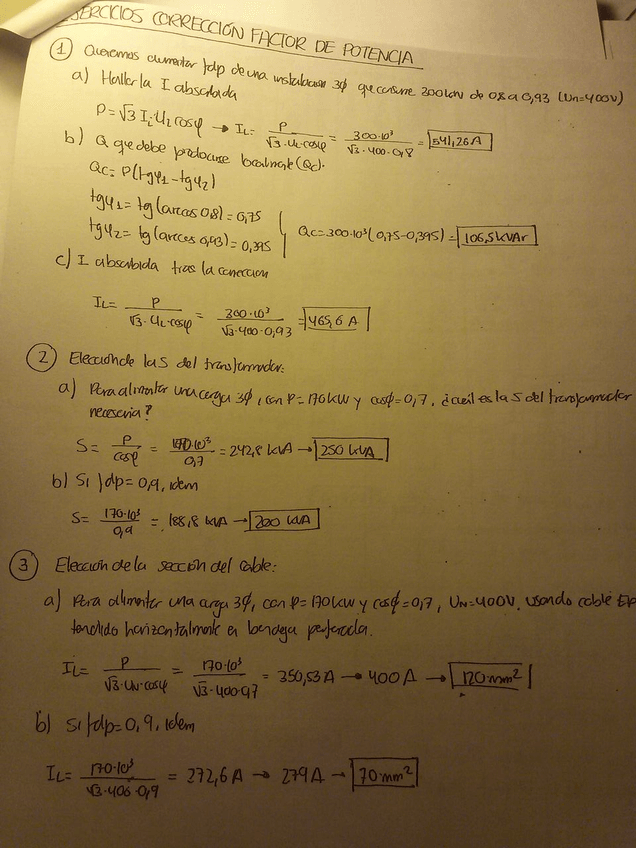 EJERCICIOS CORRECCIÓN FACTOR DE POTENCIA
① Queremos aumentar fdp de una instalación 3φ que consume 300kW de 0,8 a 0,93 (Un=400V)
a) Hallar la I absorbida
P=√3 IL·UL cosφ → IL= P/(√3·UL·cosφ) = 300·10³/(√3·400·0,8) = 541,26 A
b) Q que debe producirse localmente (Qc).
Qc= P(tgφ1-tgφ2)
tgφ1= tg(arccos 0,8)=0,75
tgφ2= tg(arccos 0,93)=0,395
Qc=300·10³(0,75-0,395)= 106,5 kVAr
c) I absorbida tras la corrección
IL= P/(√3·UL·cosφ) = 300·10³/(√3·400·0,93) = 465,6 A
② Elección de la S del transformador:
a) Para alimentar una carga 3φ, con P=170kW y cosφ=0,7, ¿cuál es la S del transformador
necesaria?
S= P/cosφ = 170·10³/0,7 = 242,8 kVA → 250 kVA
b) Si fdp=0,9, idem
S= 170·10³/0,9 = 188,8 kVA → 200 kVA
③ Elección de la sección del cable:
a) Para alimentar una carga 3φ, con P=170kW y cosφ=0,7, UN=400V, usando cable
tendido horizontalmente en bandeja perforada.
IL= P/(√3·UN·cosφ) = 170·10³/(√3·400·0,7) = 350,53A → 400A → 120mm²
b) Si fdp=0,9, idem
IL= 170·10³/(√3·400·0,9) = 272,6A → 279A → 70mm²